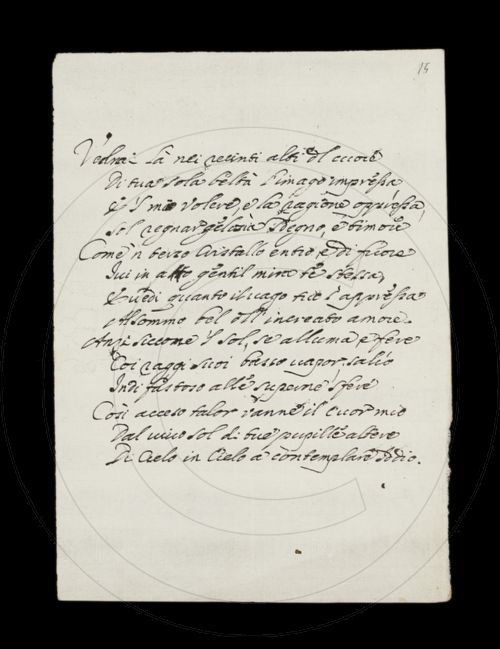 15
Vedrai là nei recinti alti del cuore
Di tua sola beltà l'imago impressa
E 'l mio volere, e la ragione oppressa,
Sol regnar gelosia, sdegno, e timore
Come 'n terso Cristallo entro, e di fuore
Ivi in atto gentil mira te stessa,
E vedi quanto il vago tuo s'appressa
Al sommo bel dell'increato amore.
Anzi siccome 'l sol, se alluma e fere
Coi raggi suoi basso vapor, salio
Indi fastoso alle superne sfere
Così acceso talor vanne il cuor mio
Dal vivo sol di tue pupille altere
Di Cielo in Cielo a contemplare Iddio.